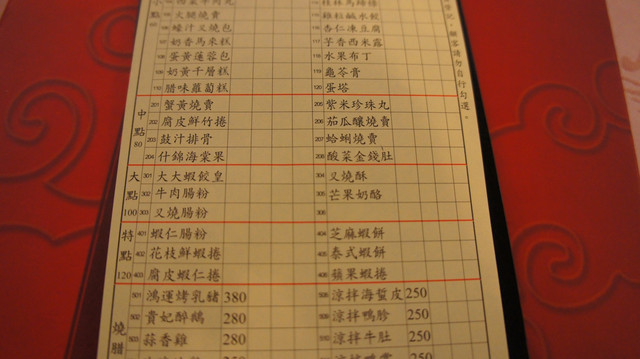 106 火腿燒賣 116 雞粒鹹水餃
106 蠔汁叉燒包 116 杏仁凍豆腐
107 奶香馬來糕 117 芋香西米露
108 蛋黃蓮蓉包 118 水果布丁
109 奶黃千層糕 119 龜苓膏
110 腊味蘿蔔糕 120 蛋塔
中點 80
201 蟹黃燒賣 205 紫米珍珠丸
202 腐皮鮮竹捲 206 茄瓜釀燒賣
203 豉汁排骨 207 蛤蜊燒賣
204 什錦海棠果 208 酸菜金錢肚
大點 100
301 大大蝦餃皇 304 叉燒酥
302 牛肉腸粉 305 芒果奶酪
303 叉燒腸粉 306
特點 120
401 蝦仁腸粉 404 芝麻蝦餅
402 花枝鮮蝦捲 405 泰式蝦餅
403 腐皮蝦仁捲 406 蘋果蝦捲
燒腊
501 鴻運烤乳豬 380 508 涼拌海蜇皮 250
502 貴妃醉鵝 280 509 涼拌鴨胗 250
503 蒜香雞 280 510 涼拌牛肚 250
顧客請勿自行勾選。